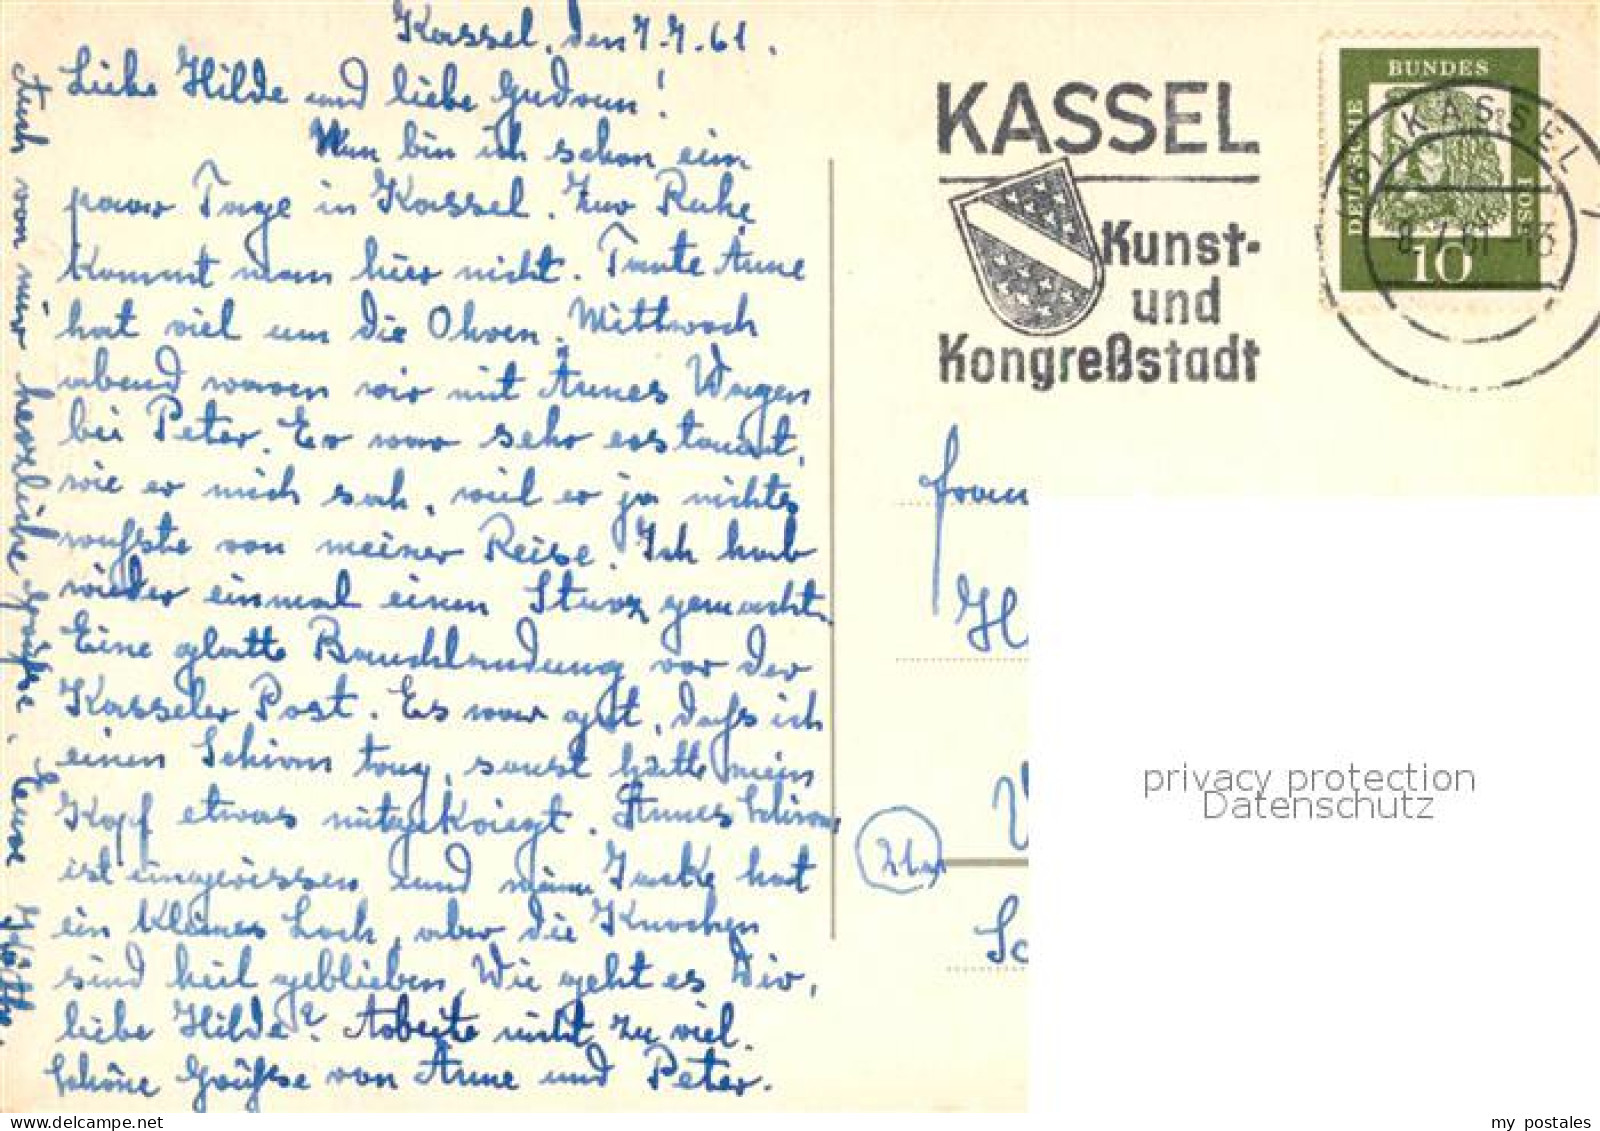 Kassel, den 7.7.61.
Liebe Hilde und liebe Gudrun!
Nun bin ich schon ein
paar Tage in Kassel. Zur Ruhe
kommt man hier nicht. Tante Änne
hat viel um die Ohren. Mittwoch
abend waren wir mit Ännes Wagen
bei Peter. Er war sehr erstaunt,
wie er mich sah, weil er ja nichts
wußte von meiner Reise. Ich hab
wieder einmal einen Sturz gemacht.
Eine glatte Bauchlandung vor der
Kasseler Post. Es war gut, daß ich
einen Schirm trug, sonst hätte mein
Kopf etwas mitgekriegt. Ännes Schirm
ist eingerissen und meine Jacke hat
ein kleines Loch, aber die Knochen
sind heil geblieben. Wie geht es Dir,
liebe Hilde? Arbeite nicht zu viel.
Schöne Grüße von Änne und Peter.
Auch von mir herzliche Grüße. Eure Käthe.
KASSEL
Kunst-
und
Kongreßstadt
DEUTSCHE BUNDESPOST
10
KASSEL
8.7.61-13
Frau
H
Sc
privacy protection
Datenschutz
my postales